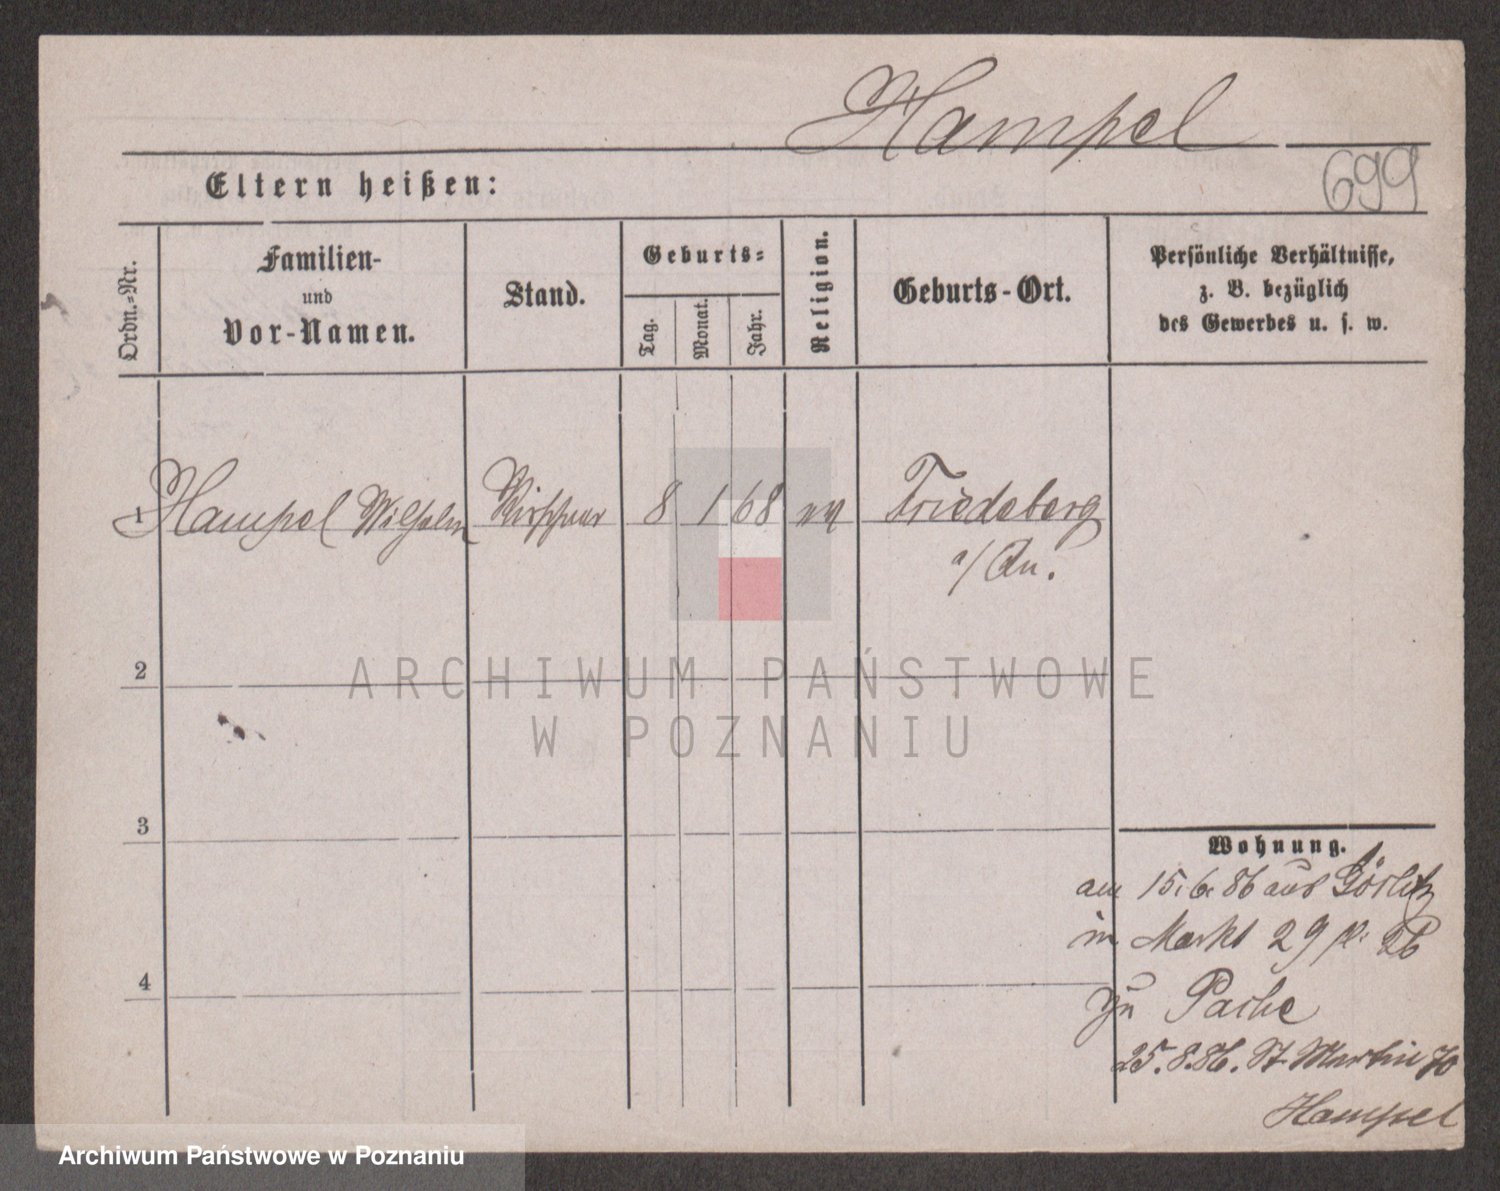 Hampel
Eltern heißen:
699
Ordn.=Nr.
Familien-
und
Vor-Namen.
Stand.
Geburts=
Tag.
Monat.
Jahr.
Religion.
Geburts-Ort.
Persönliche Verhältnisse,
z. B. bezüglich
des Gewerbes u. s. w.
1 Hampel Wilhelm Kürschner 8 1 68 ev Friedeberg
a/Qu.
2
ARCHIWUM PAŃSTWOWE
W POZNANIU
3
Wohnung.
am 15.6.86 aus Görlitz
in Markt 29
4
zu
25.8.86. St. Martin 70
Hampel
Archiwum Państwowe w Poznaniu